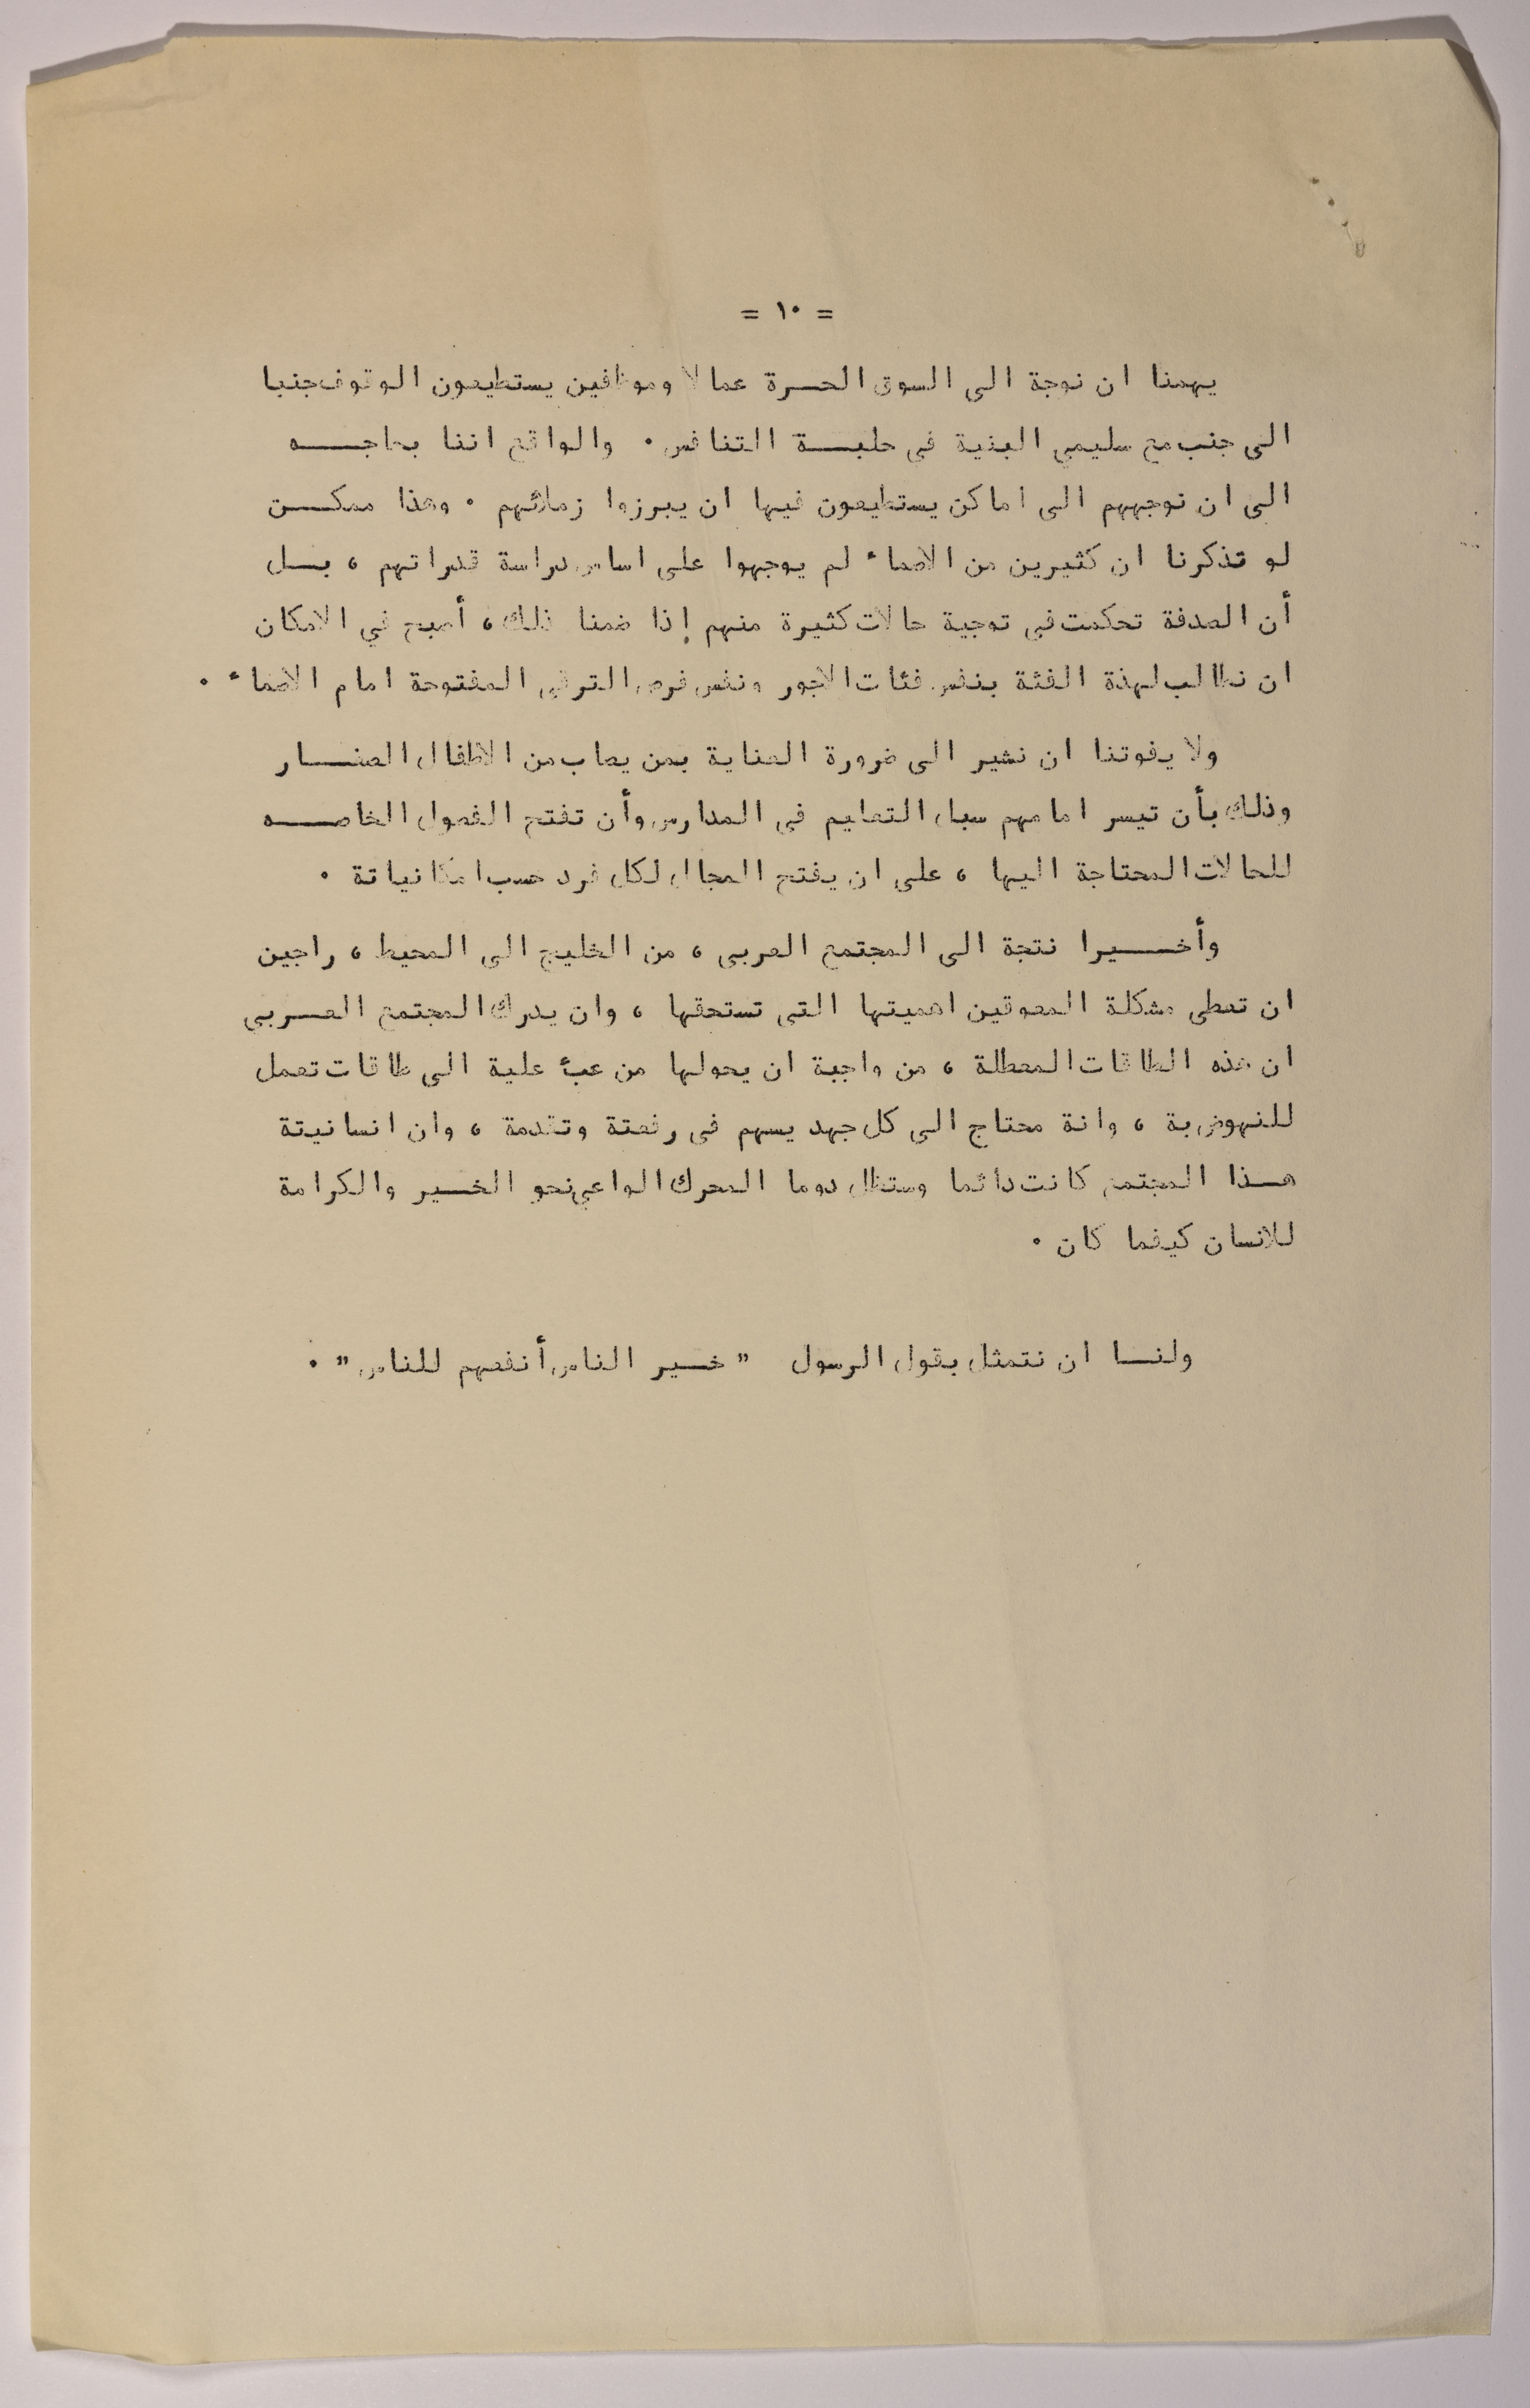 = ١٠ =
يهمنا ان نوجة الى السوق الحـــرة عمالا وموظفين يستطيعون الوقوف جنبا
الى جنب مع سليمي البنية في حلبـــة التنافس ٠ والواقع اننا بحاجـــه
الى ان نوجههم الى اماكن يستطيعون فيها ان يبرزوا زملائهم ٠ وهذا ممكـــن
لو تذكرنا ان كثيرين من الاصحاء لم يوجهوا على اساس دراسة قدراتهم ، بـــل
أن الصدفة تحكمت في توجية حالات كثيرة منهم إذا ضمنا ذلك ، أصبح في الامكان
ان نطالب لهذة الفئة بنفس فئات الاجور ونفس فرص الترقي المفتوحة امام الاصحاء ٠
ولا يفوتنا ان نشير الى ضرورة العناية بمن يصاب من الاطفال الصغـــار
وذلك بأن تيسر امامهم سبل التعليم في المدارس وأن تفتح الفصول الخاصـــه
للحالات المحتاجة اليها ، على ان يفتح المجال لكل فرد حسب امكانياتة ٠
وأخـــيرا نتجة الى المجتمع العربي ، من الخليج الى المحيط ، راجين
ان تعطى مشكلة المعوقين اهميتها التي تستحقها ، وان يدرك المجتمع العـــربي
ان هذه الطاقات المعطلة ، من واجبة ان يحولها من عبأ علية الى طاقات تعمل
للنهوض بة ، وانة محتاج الى كل جهد يسهم في رفعتة وتقدمة ، وان انسانيتة
هـــذا المجتمع كانت دائما وستظل دوما المحرك الواعي نحو الخـــير والكرامة
للانسان كيفما كان ٠
ولنـــا ان نتمثل بقول الرسول " خـــير الناس أنفعهم للناس " ٠